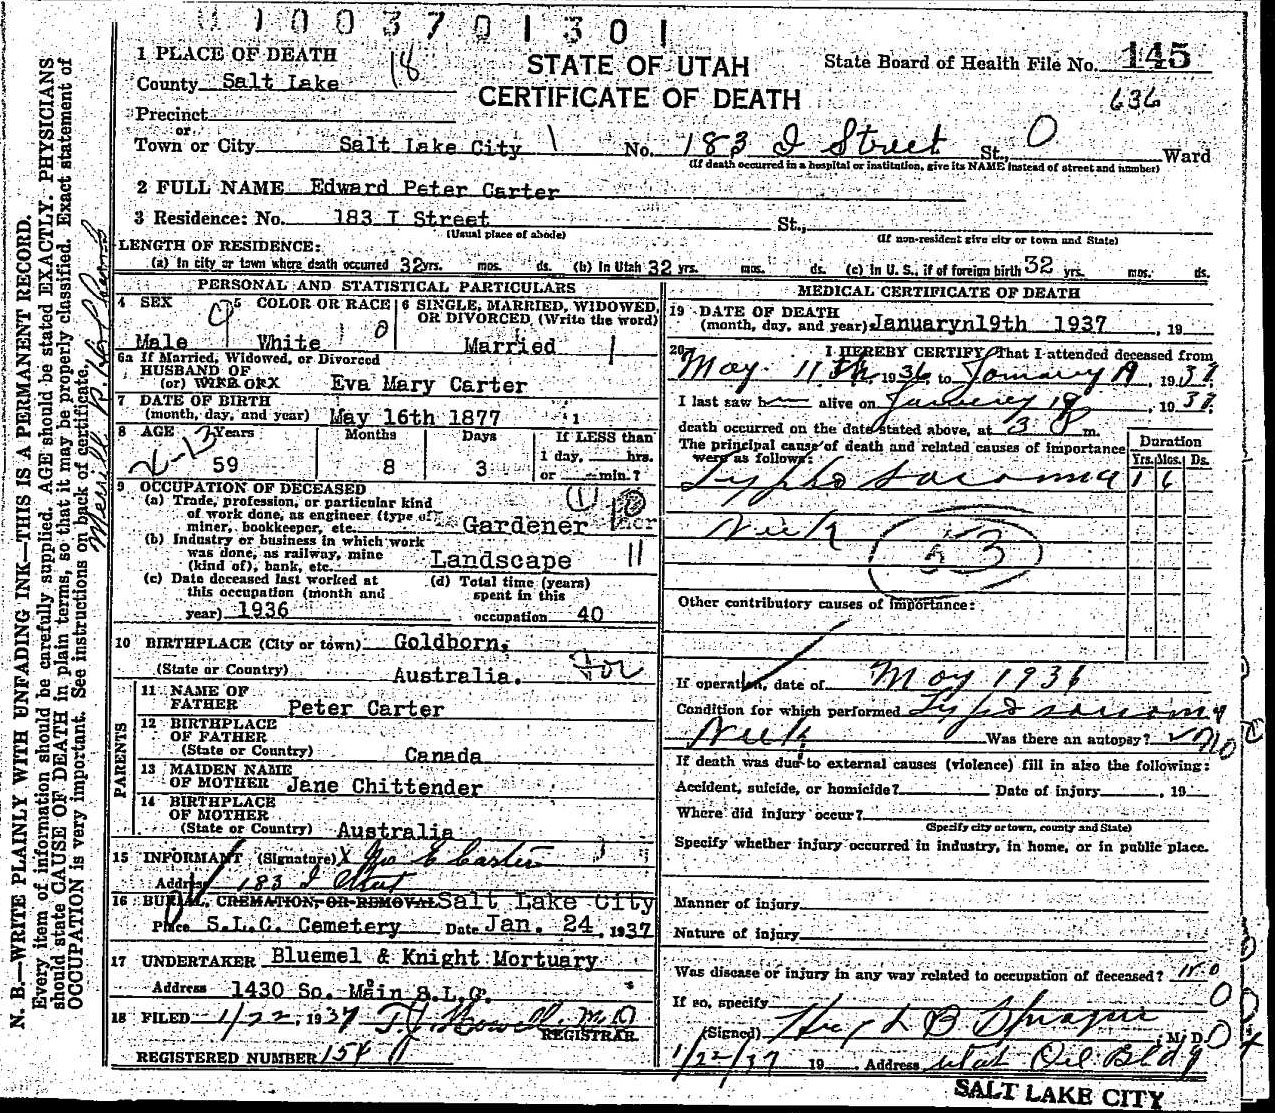 1003701301
1 PLACE OF DEATH
18
STATE OF UTAH
State Board of Health File No. 145
County Salt Lake
CERTIFICATE OF DEATH
636
Precinct
or
Town or City Salt Lake City 1 No. 183 I Street St., 0 Ward
(If death occurred in a hospital or institution, give its NAME instead of street and number)
2 FULL NAME Edward Peter Carter
3 Residence: No. 183 I Street St.,
(Usual place of abode) (If non-resident give city or town and State)
LENGTH OF RESIDENCE:
(a) In city or town where death occurred 32 yrs. mos. ds. (b) In Utah 32 yrs. mos. ds. (c) in U. S., if of foreign birth 32 yrs. mos. ds.
PERSONAL AND STATISTICAL PARTICULARS
4 SEX 5 COLOR OR RACE 6 SINGLE, MARRIED, WIDOWED,
OR DIVORCED, (Write the word)
Male White 0 Married 1
6a If Married, Widowed, or Divorced
HUSBAND OF
(or) WIFE OF Eva Mary Carter
7 DATE OF BIRTH
(month, day, and year) May 16th 1877
8 AGE Years Months Days If LESS than
1 day, hrs.
59 8 3 or min.?
9 OCCUPATION OF DECEASED
(a) Trade, profession, or particular kind
of work done, as engineer (type of)
miner, bookkeeper, etc. Gardener
(b) Industry or business in which work
was done, as railway, mine
(kind of), bank, etc. Landscape 11
(c) Date deceased last worked at
this occupation (month and
year) 1936
(d) Total time (years)
spent in this
occupation 40
10 BIRTHPLACE (City or town) Goldborn,
(State or Country) Australia.
PARENTS
11 NAME OF
FATHER Peter Carter
12 BIRTHPLACE
OF FATHER
(State or Country) Canada
13 MAIDEN NAME
OF MOTHER Jane Chittender
14 BIRTHPLACE
OF MOTHER
(State or Country) Australia
15 INFORMANT (Signature) X Geo E Carter
Address 183 I Street
16 BURIAL, CREMATION, OR REMOVAL Salt Lake City
Place S.L.C. Cemetery Date Jan. 24, 1937
17 UNDERTAKER Bluemel & Knight Mortuary
Address 1430 So. Main S.L.C.
18 FILED 1/22, 1937 T.J. Howells, M.D
REGISTRAR.
REGISTERED NUMBER 154
MEDICAL CERTIFICATE OF DEATH
19 DATE OF DEATH
(month, day, and year) Januaryn19th 1937, 19
20 I HEREBY CERTIFY, That I attended deceased from
May 11th, 1936, to January 19, 1937.
I last saw h alive on January 18, 1937.
death occurred on the date stated above, at 3 m.
The principal cause of death and related causes of importance
were as follows:
Duration
Yrs. Mos. Ds.
Lypho sacoma 1 6
Neck
53
Other contributory causes of importance:
If operation, date of May 1936
Condition for which performed Lypho sarcoma
Neck Was there an autopsy? no
If death was due to external causes (violence) fill in also the following:
Accident, suicide, or homicide? Date of injury , 19
Where did injury occur?
(Specify city or town, county and State)
Specify whether injury occurred in industry, in home, or in public place.
Manner of injury
Nature of injury
Was disease or injury in any way related to occupation of deceased? no
If so, specify
(Signed) Hugh B Sprague, M. D.
1/22/37 19 Address Utah Oil Bldg
SALT LAKE CITY
N. B.—WRITE PLAINLY WITH UNFADING INK—THIS IS A PERMANENT RECORD.
Every item of information should be carefully supplied. AGE should be stated EXACTLY. PHYSICIANS
should state CAUSE OF DEATH in plain terms, so that it may be properly classified. Exact statement of
OCCUPATION is very important. See instructions on back of certificate.